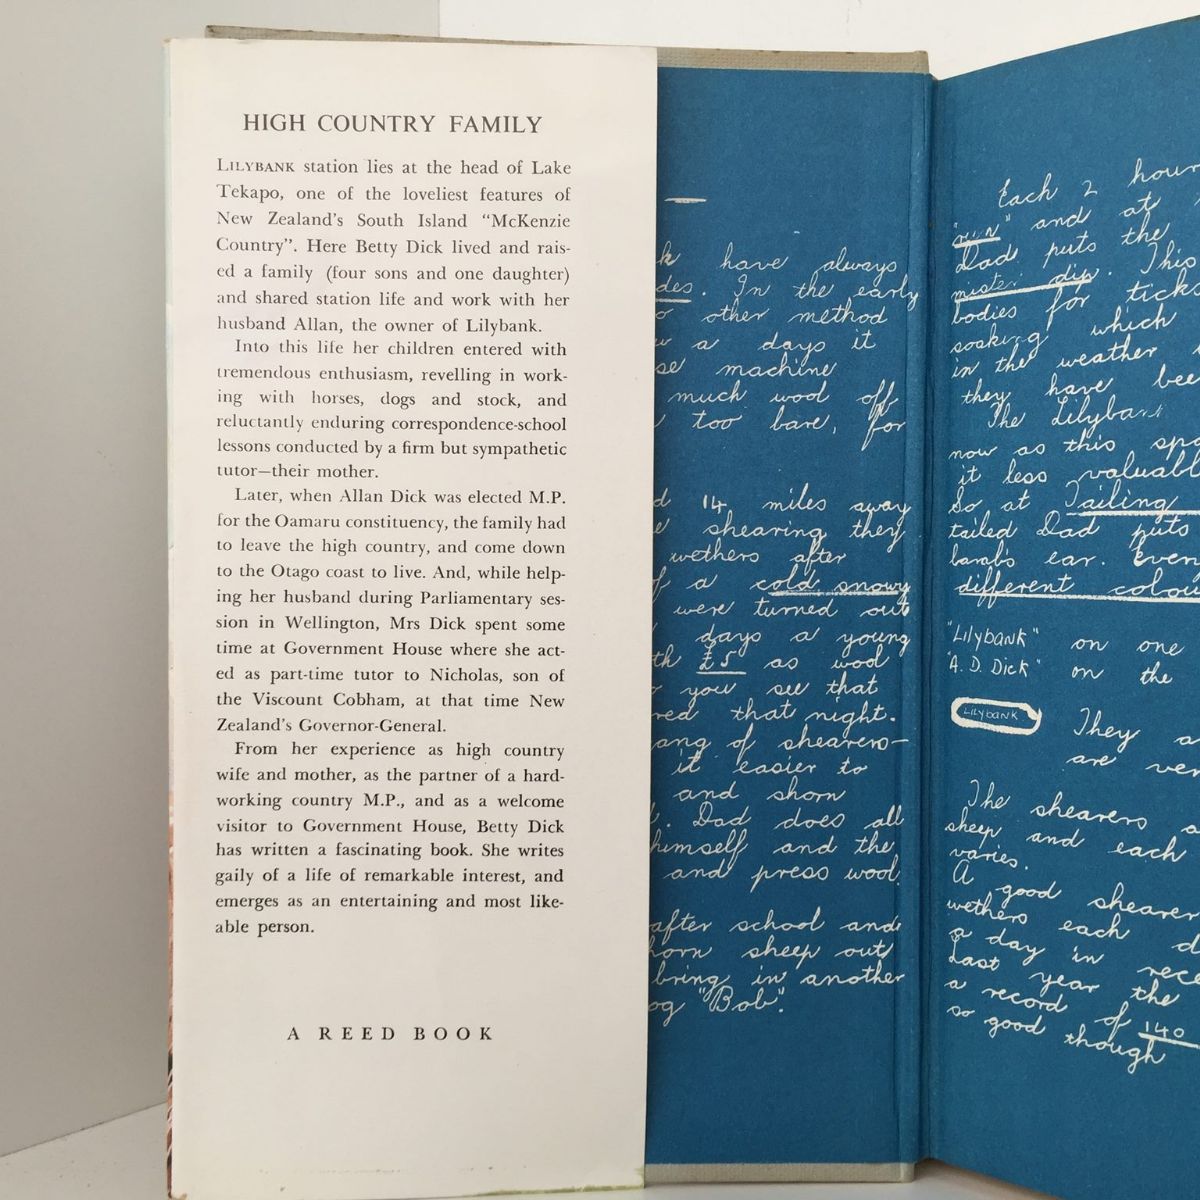 HIGH COUNTRY FAMILY
LILYBANK station lies at the head of Lake
Tekapo, one of the loveliest features of
New Zealand's South Island "McKenzie
Country". Here Betty Dick lived and rais-
ed a family (four sons and one daughter)
and shared station life and work with her
husband Allan, the owner of Lilybank.
Into this life her children entered with
tremendous enthusiasm, revelling in work-
ing with horses, dogs and stock, and
reluctantly enduring correspondence-school
lessons conducted by a firm but sympathetic
tutor—their mother.
Later, when Allan Dick was elected M.P.
for the Oamaru constituency, the family had
to leave the high country, and come down
to the Otago coast to live. And, while help-
ing her husband during Parliamentary ses-
sion in Wellington, Mrs Dick spent some
time at Government House where she act-
ed as part-time tutor to Nicholas, son of
the Viscount Cobham, at that time New
Zealand's Governor-General.
From her experience as high country
wife and mother, as the partner of a hard-
working country M.P., and as a welcome
visitor to Government House, Betty Dick
has written a fascinating book. She writes
gaily of a life of remarkable interest, and
emerges as an entertaining and most like-
able person.
A REED BOOK
have always
. In the early
other method
a days it
machine
much wool off
too bare, for
14 miles away
shearing they
wethers after
a cold snowy
were turned out
days a young
£5 as wool
you see that
that night.
of shearers—
it easier to
and shorn
Dad does all
himself and the
and press wool.
after school and
sheep out
bring in another
"Bob".
Each 2 hour
and at
Dad puts the
dip. This
bodies for ticks
soaking which
in the weather
they have bee
The Lilybank
now as this
it less valuabl
So at Tailing
tailed Dad puts
lamb's ear. Even
different colou
"Lilybank" on one
"A. D. Dick" on the
LILYBANK
They
are ver
The shearers
sheep and each
varies.
A good shearer
wethers each
a day in
Last year the
a record of 140
so good though